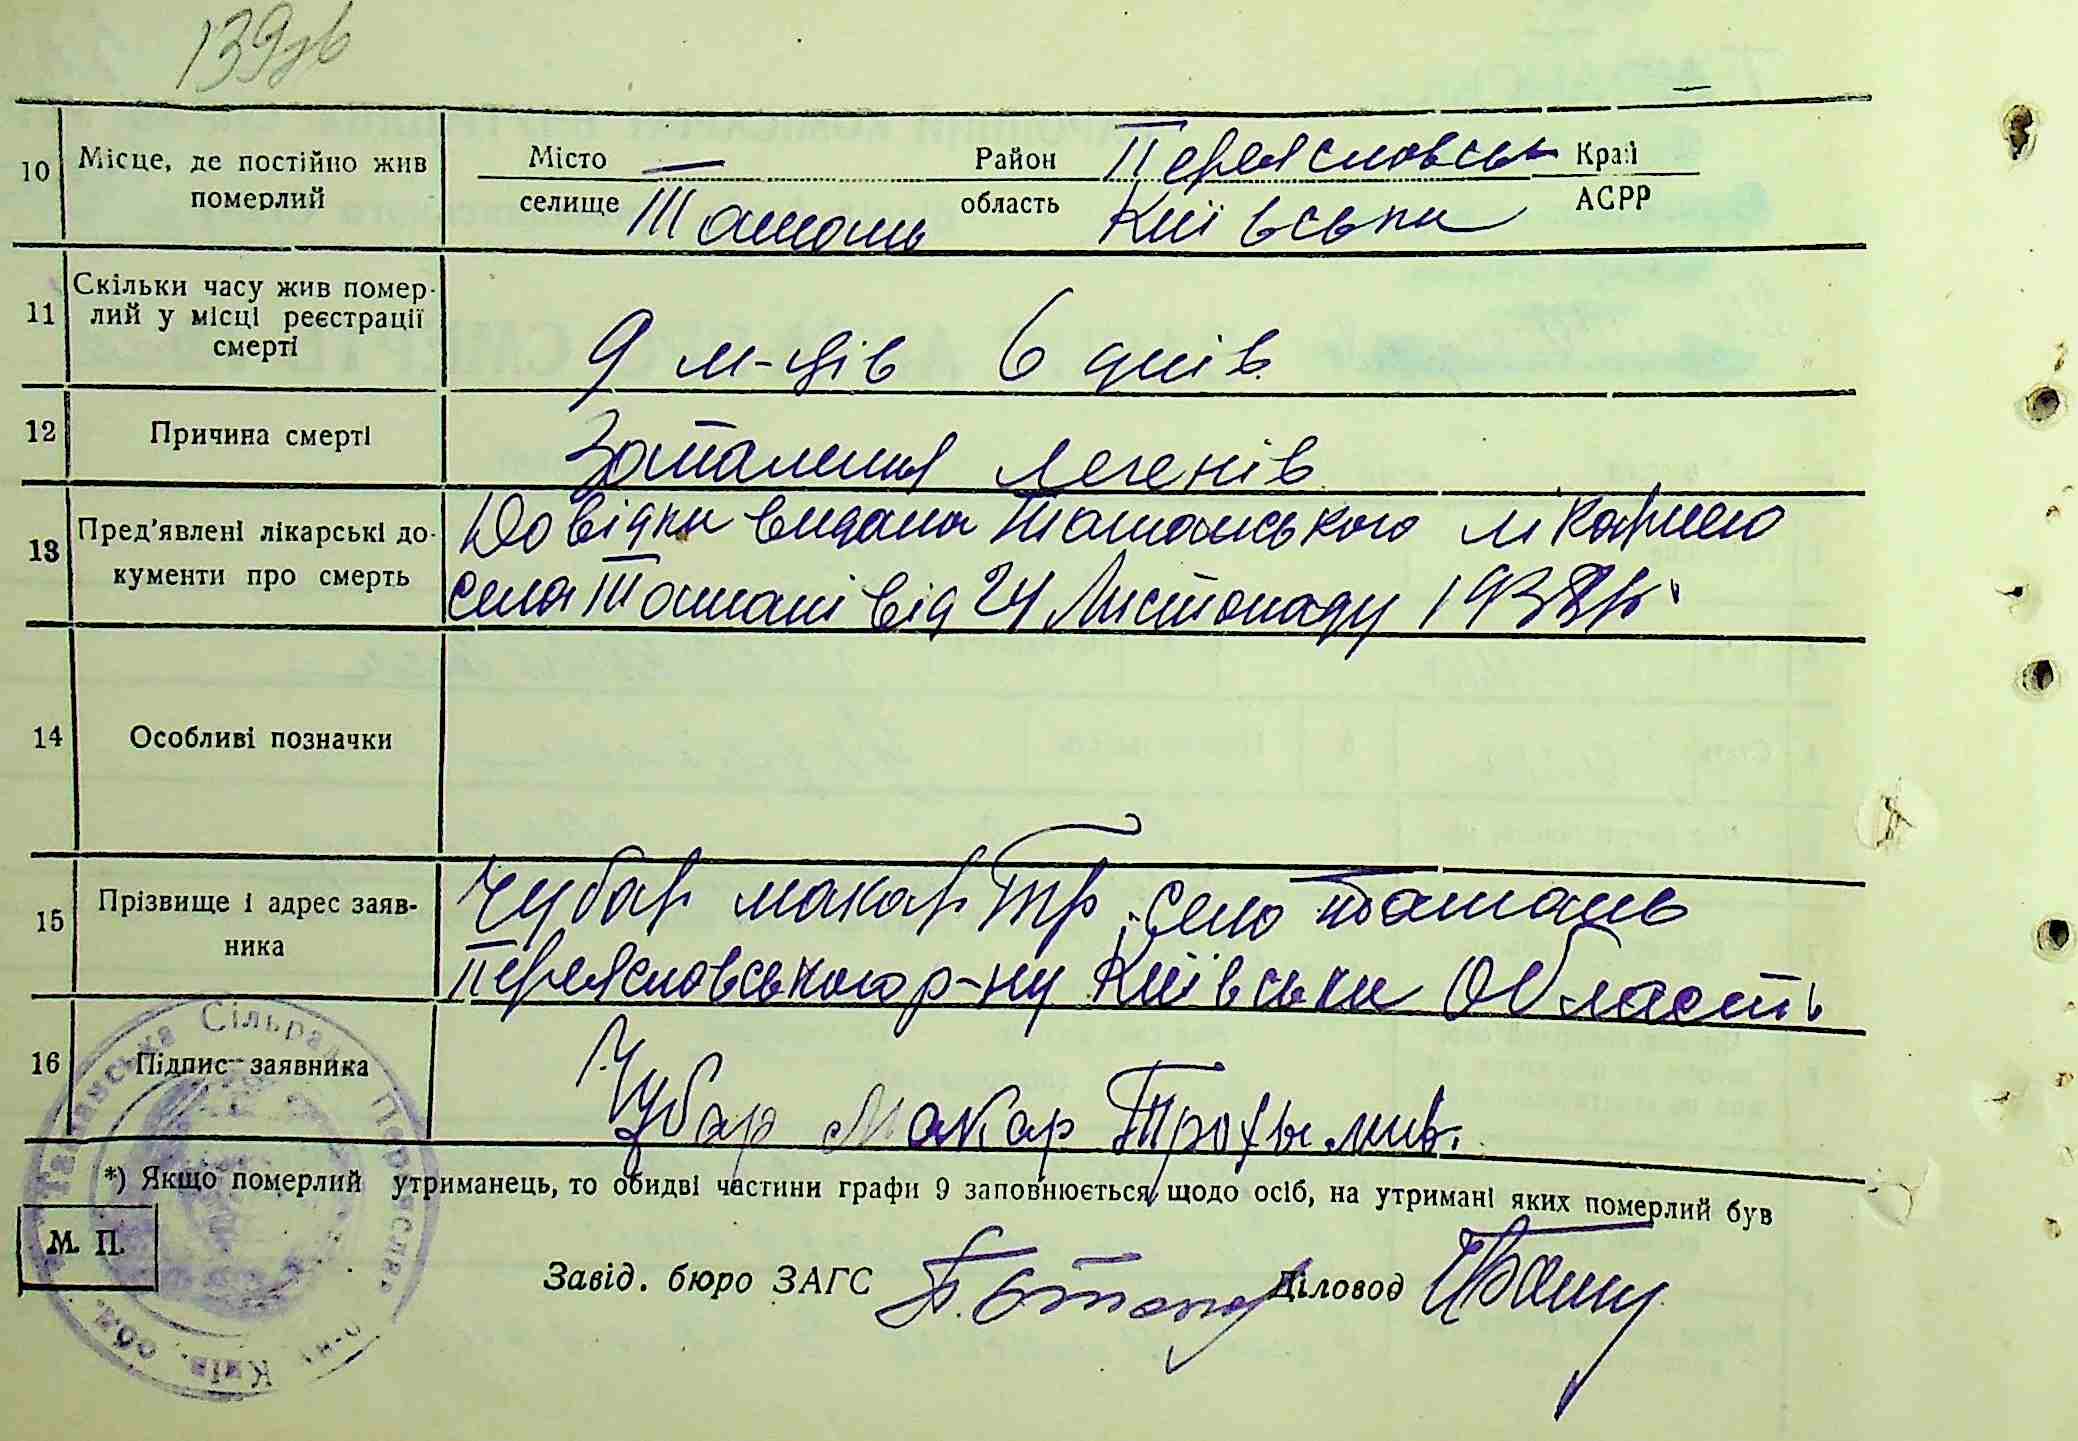 139зв
10 Місце, де постійно жив померлий Місто — Район Переясловськ Край
селище Ташань область Київська АСРР
11 Скільки часу жив помер-
лий у місці реєстрації
смерті
9 м-ців 6 днів
12 Причина смерті Запалення легенів
13 Пред'явлені лікарські до-
кументи про смерть
Довідка видана Ташанського
села Ташані від 24 Листопаду
14 Особливі позначки
15 Прізвище і адрес заяв-
ника
Чубар макар Тр. село ташань
Переясловського р-ну Київська Область
16 Підпис заявника Чубар Макар Трохымив.
*) Якщо померлий утриманець, то обидві частини графи 9 заповнюється, щодо осіб, на утримані яких померлий був
М. П.
Завід. бюро ЗАГС Діловод
Ташанська Сільрада Переяслав. р-ну Київ. обл.